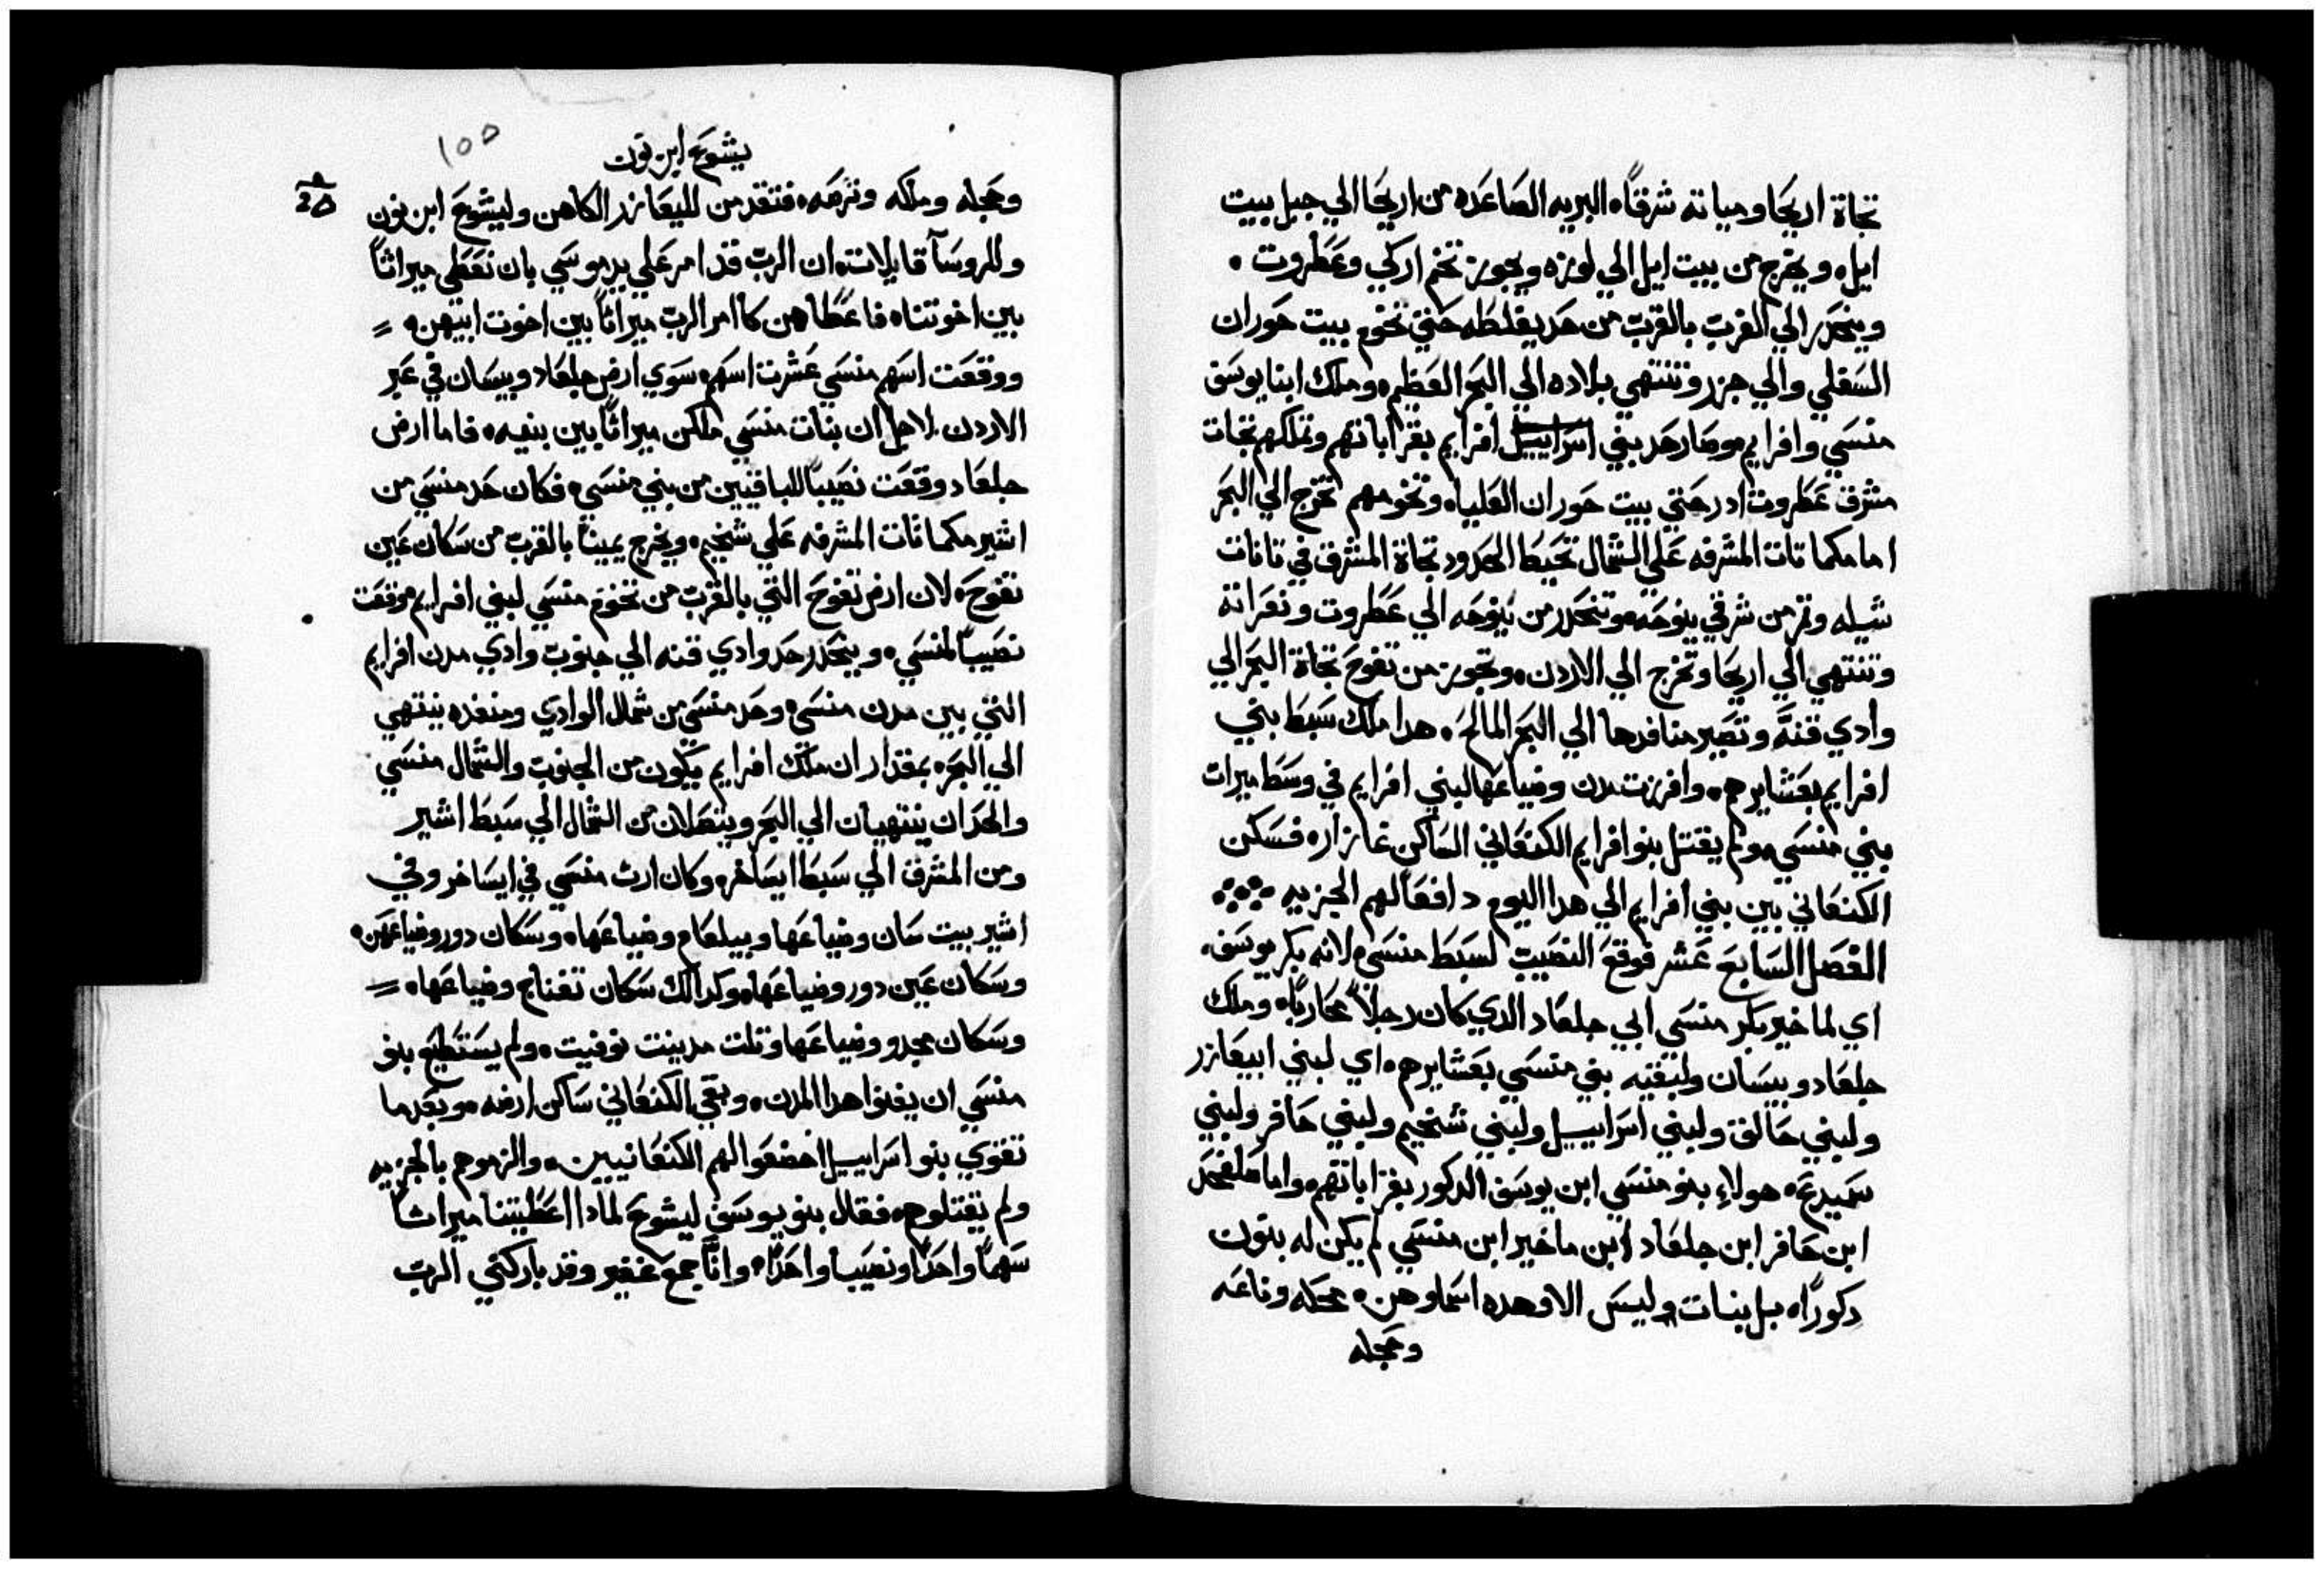 تجاة اريحا ومياته شرقاً، البريه الصاعده من اريحا الي جبل بيت
ايل، ويخرج من بيت ايل الي لوزه، ويجوز تخم اركي وعطروت.
وينحدر الي الغرب بالقرب من حد يفلطه حتي تخوم بيت حوران
السفلي والي جزر وتنتهي بلاده الي البحر العظيم، وملك ابنا يوسف
منسي وافرايم، وصار حد بني اسراييل افرايم بقراباتهم وتملكهم تجات
مشرق عطروت ادر حتي بيت حوران العليا، وتخومهم تخرج الي البحر
اما مكماتات المشرفه علي الشمال تحيط الحدود تجاة المشرق في تانات
شيله وتمر من شرقي ينوحه، وتنحدر من ينوحه الي عطروت ونعراته
وتنتهي الي اريحا وتخرج الي الاردن، وتجوز من تفوح تجاة البحر الي
وادي قنه وتصير منافدها الي البحر المالح، هدا ملك سبط بني
افرايم بعشايرهم، وافرزت مدن وضياعها لبني افرايم في وسط ميرات
بني منسي، ولم يقتل بنو افرايم الكنعاني الساكن غازار، فسكن
الكنعاني بين بني افرايم الي هدا اليوم دافعا لهم الجزيه
الفصل السابع عشر فوقع النصيب لسبط منسي، لانه بكر يوسف،
اي لماخير بكر منسي ابي جلعاد الدي كان رجلاً محارباً، وملك
جلعاد وبيسان ولبقيه بني منسي بعشايرهم، اي لبني ابيعازر
ولبني حالق ولبني اسراييل ولبني شخيم ولبني حافر ولبني
سميدع، هولاء بنو منسي ابن يوسف الدكور بقراباتهم، واما صلفحد
ابن حافر ابن جلعاد ابن ماخير ابن منسي لم يكن له بنون
دكوراً، بل بنات وليس الا، وهده اسماوهن، محله وناعه
وحجله
يشوع ابن نون
١٥٥
وحجله وملكه وترصه، فتقدمن لليعازر الكاهن وليشوع ابن نون
وللروسآ قايلات، ان الرب قد امر علي يد موسي بان نعطي ميراتاً
بين اخوتنا، فاعطاهن كما امر الرب ميراتاً بين اخوت ابيهن، =
ووقعت اسهم منسي عشرت اسهم، سوي ارض جلعاد وبيسان في عبر
الاردن. لاجل ان بنات منسي ملكن ميراتاً بين بنيه، فاما ارض
جلعاد وقعت نصيباً للباقيين من بني منسي، فكان حد منسي من
اشير مكماتات المشرفه علي شخيم، ويخرج يميناً بالقرب من سكان عين
تفوح، لان ارض تفوح التي بالقرب من تخوم منسي لبني افرايم، وقعت
نصيباً لمنسي، وينحدر حد وادي قنه الي جنوب وادي مدن افرايم
التي بين مدن منسي، وحد منسي من شمال الوادي ومنفده ينتهي
الي البحر، بمقدار ان ملك افرايم يكون من الجنوب والشمال منسي
والحدان ينتهيان الي البحر ويتصلان من الشمال الي سبط اشير
ومن المشرق الي سبط ايساخر، وكان ارت منسي في ايساخر وفي
اشير بيت سان وضياعها ويبلعام وضياعها، وسكان دور وضياعهن،
وسكان عين دور وضياعها، وكدالك سكان تعناج وضياعها، =
وسكان مجدو وضياعها وتلت مدينت نوفيت، ولم يستطيع بنو
منسي ان يفنوا هدا المدن، وبقي الكنعاني ساكن ارضه، وبعد ما
تقوي بنو اسراييل اخضعوا لهم الكنعانيين، والزموهم بالجزيه
ولم يقتلوهم، فقال بنو يوسف ليشوع لمادا اعطيتنا ميراتاً
سهماً واحداً ونصيباً واحداً، وانا جمع غفير وقد باركني الرب